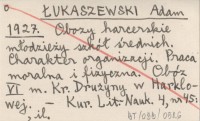 ŁUKASZEWSKI Adam
1927. Obozy harcerskie
młodzieży szkół średnich.
Charakter organizacji. Praca
moralna i fizyczna. Obóz
VI m. Kr. Drużyny w Harklo-
wej. Kur. Lit-Nauk. 4, nr 45:
, il.